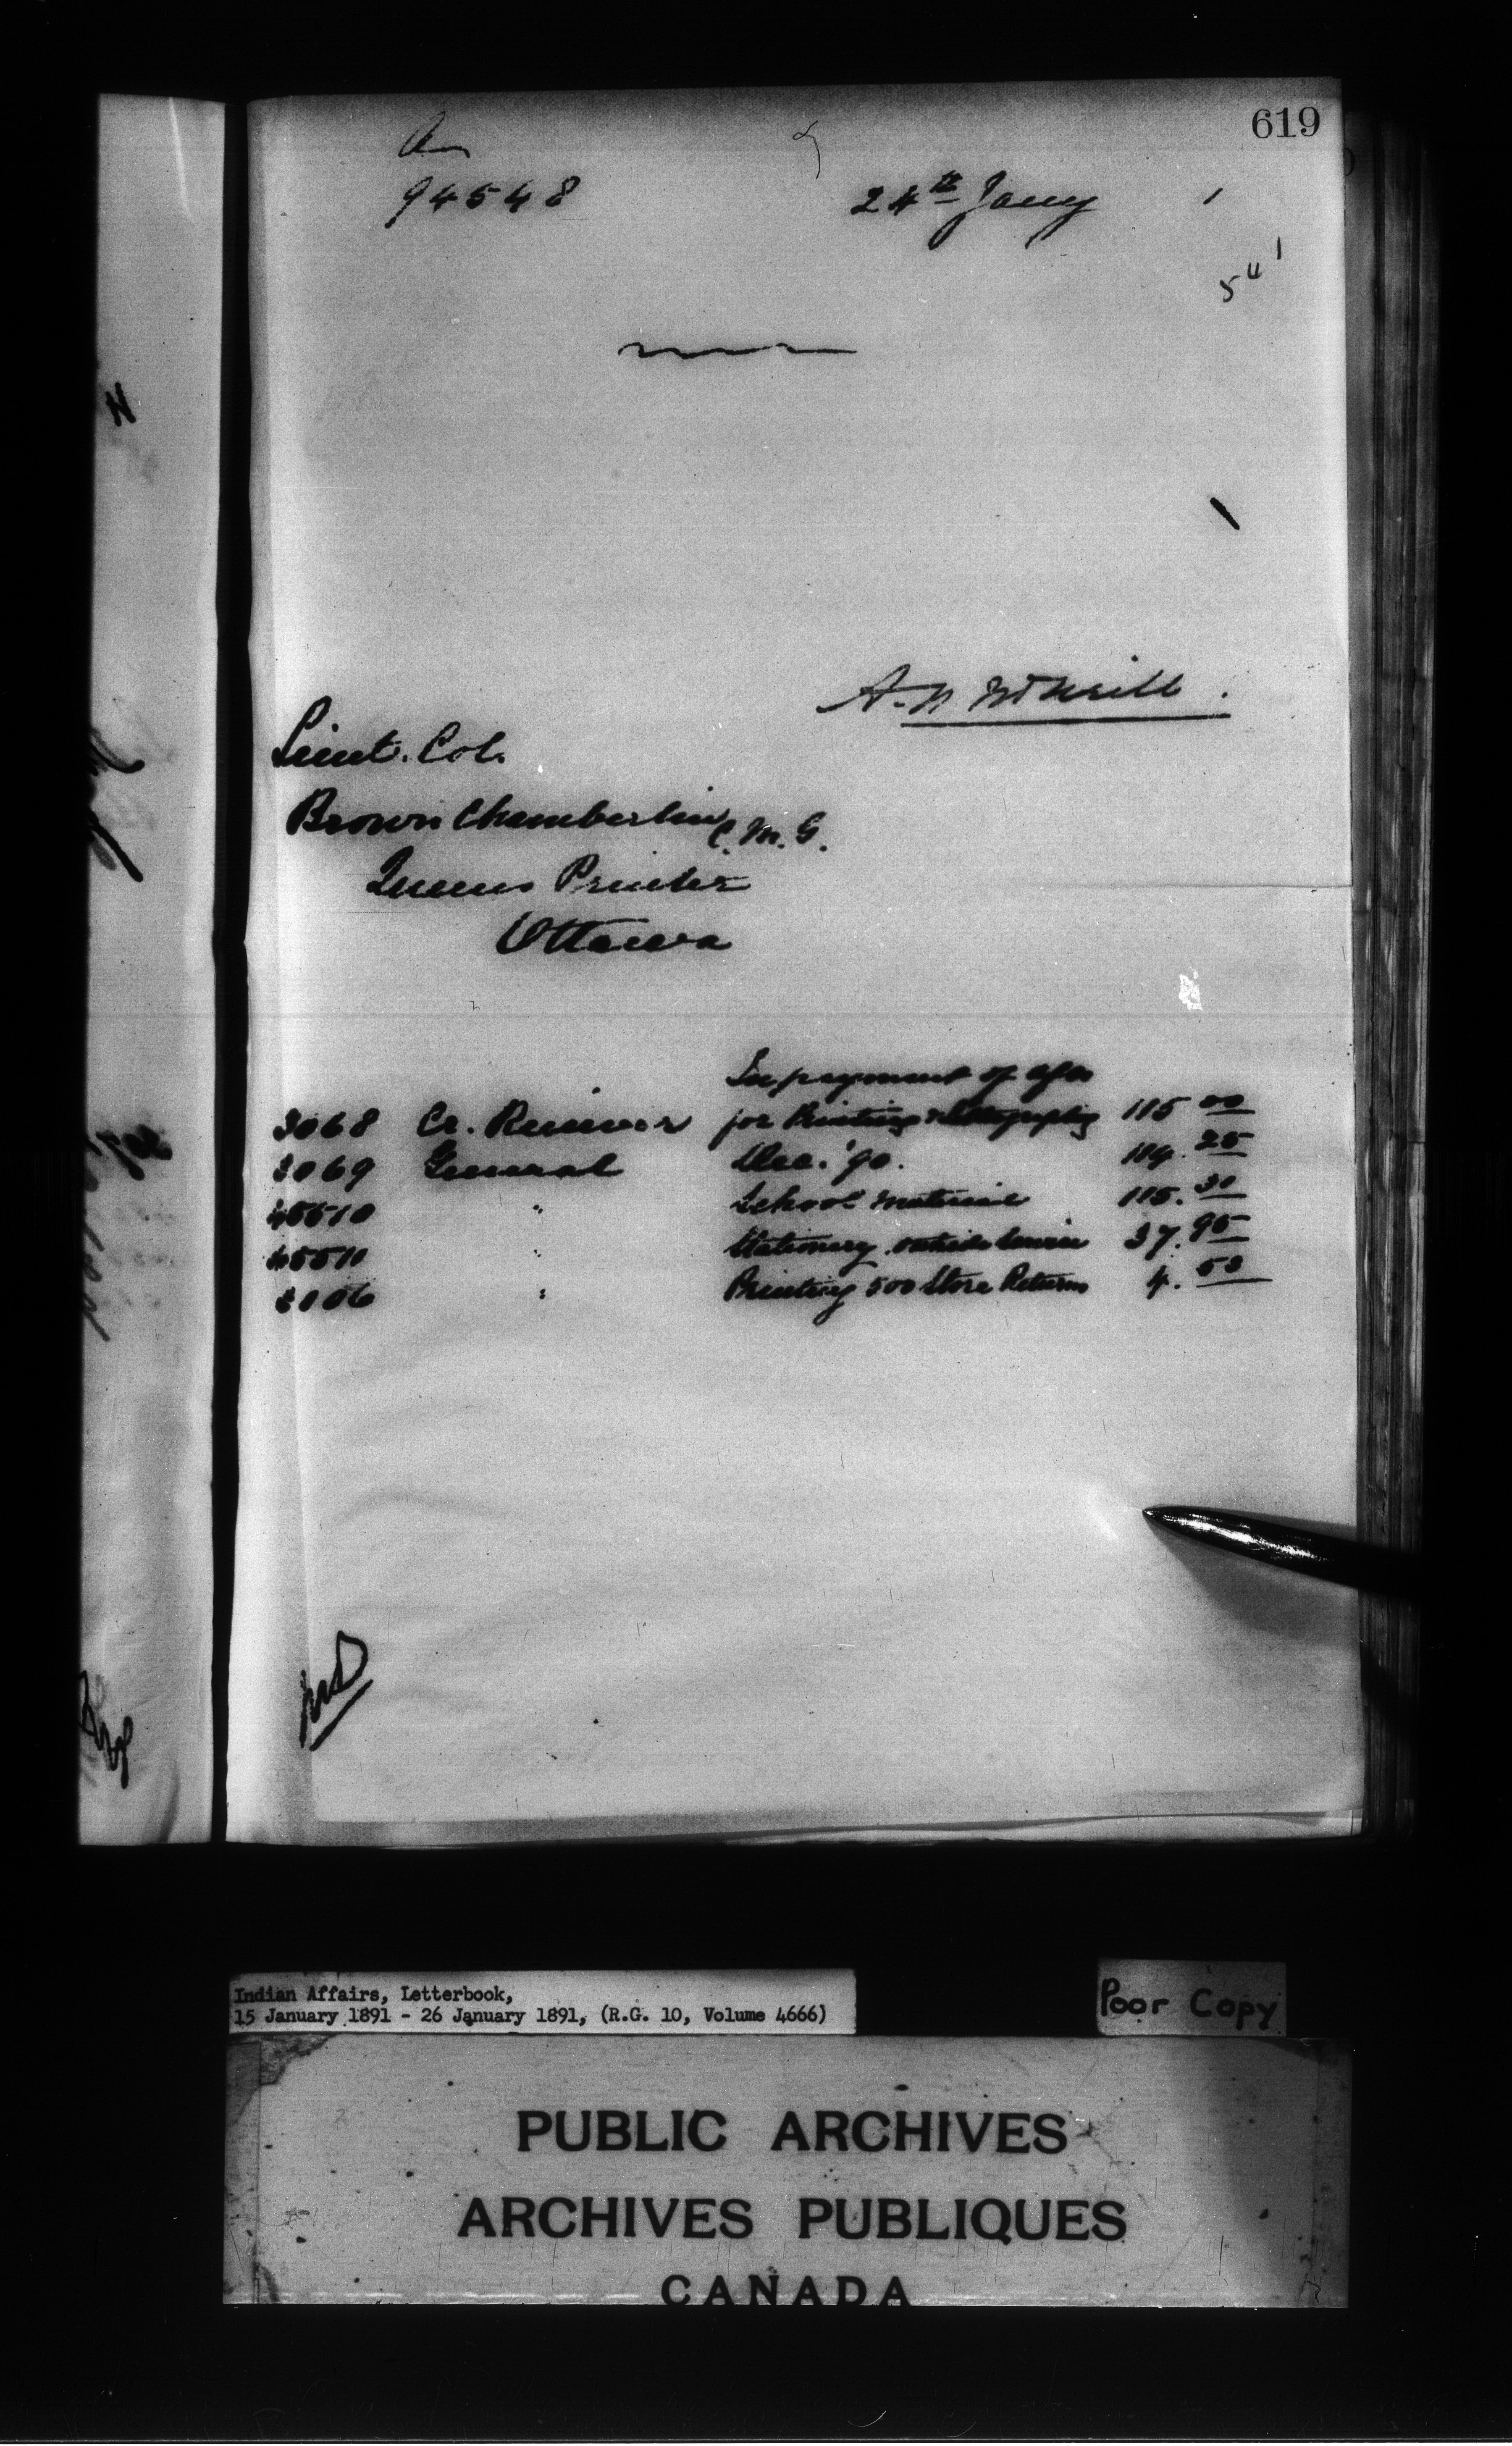 619
94548 24th Jany 1
541
A. N McNeill.
Lieut. Col.
Brown Chamberlin C.M.G.
Queens Printer
Ottawa
In payment of a/cs
3068 Cr. Receiver for Printing & Lithographing 115 00
3069 General Dec. '90. 119.25
" School material 115.30
" Stationery outside Service 37.95
" Printing 500 Store Returns 4.53
Indian Affairs, Letterbook,
15 January 1891 - 26 January 1891, (R.G. 10, Volume 4666)
Poor Copy
PUBLIC ARCHIVES
ARCHIVES PUBLIQUES
CANADA